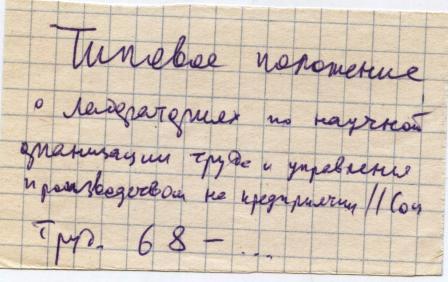 Типовое положение
о лабораториях по научной
организации труда и управления
производством на предприятии // Соц
Труд. 68 – ...